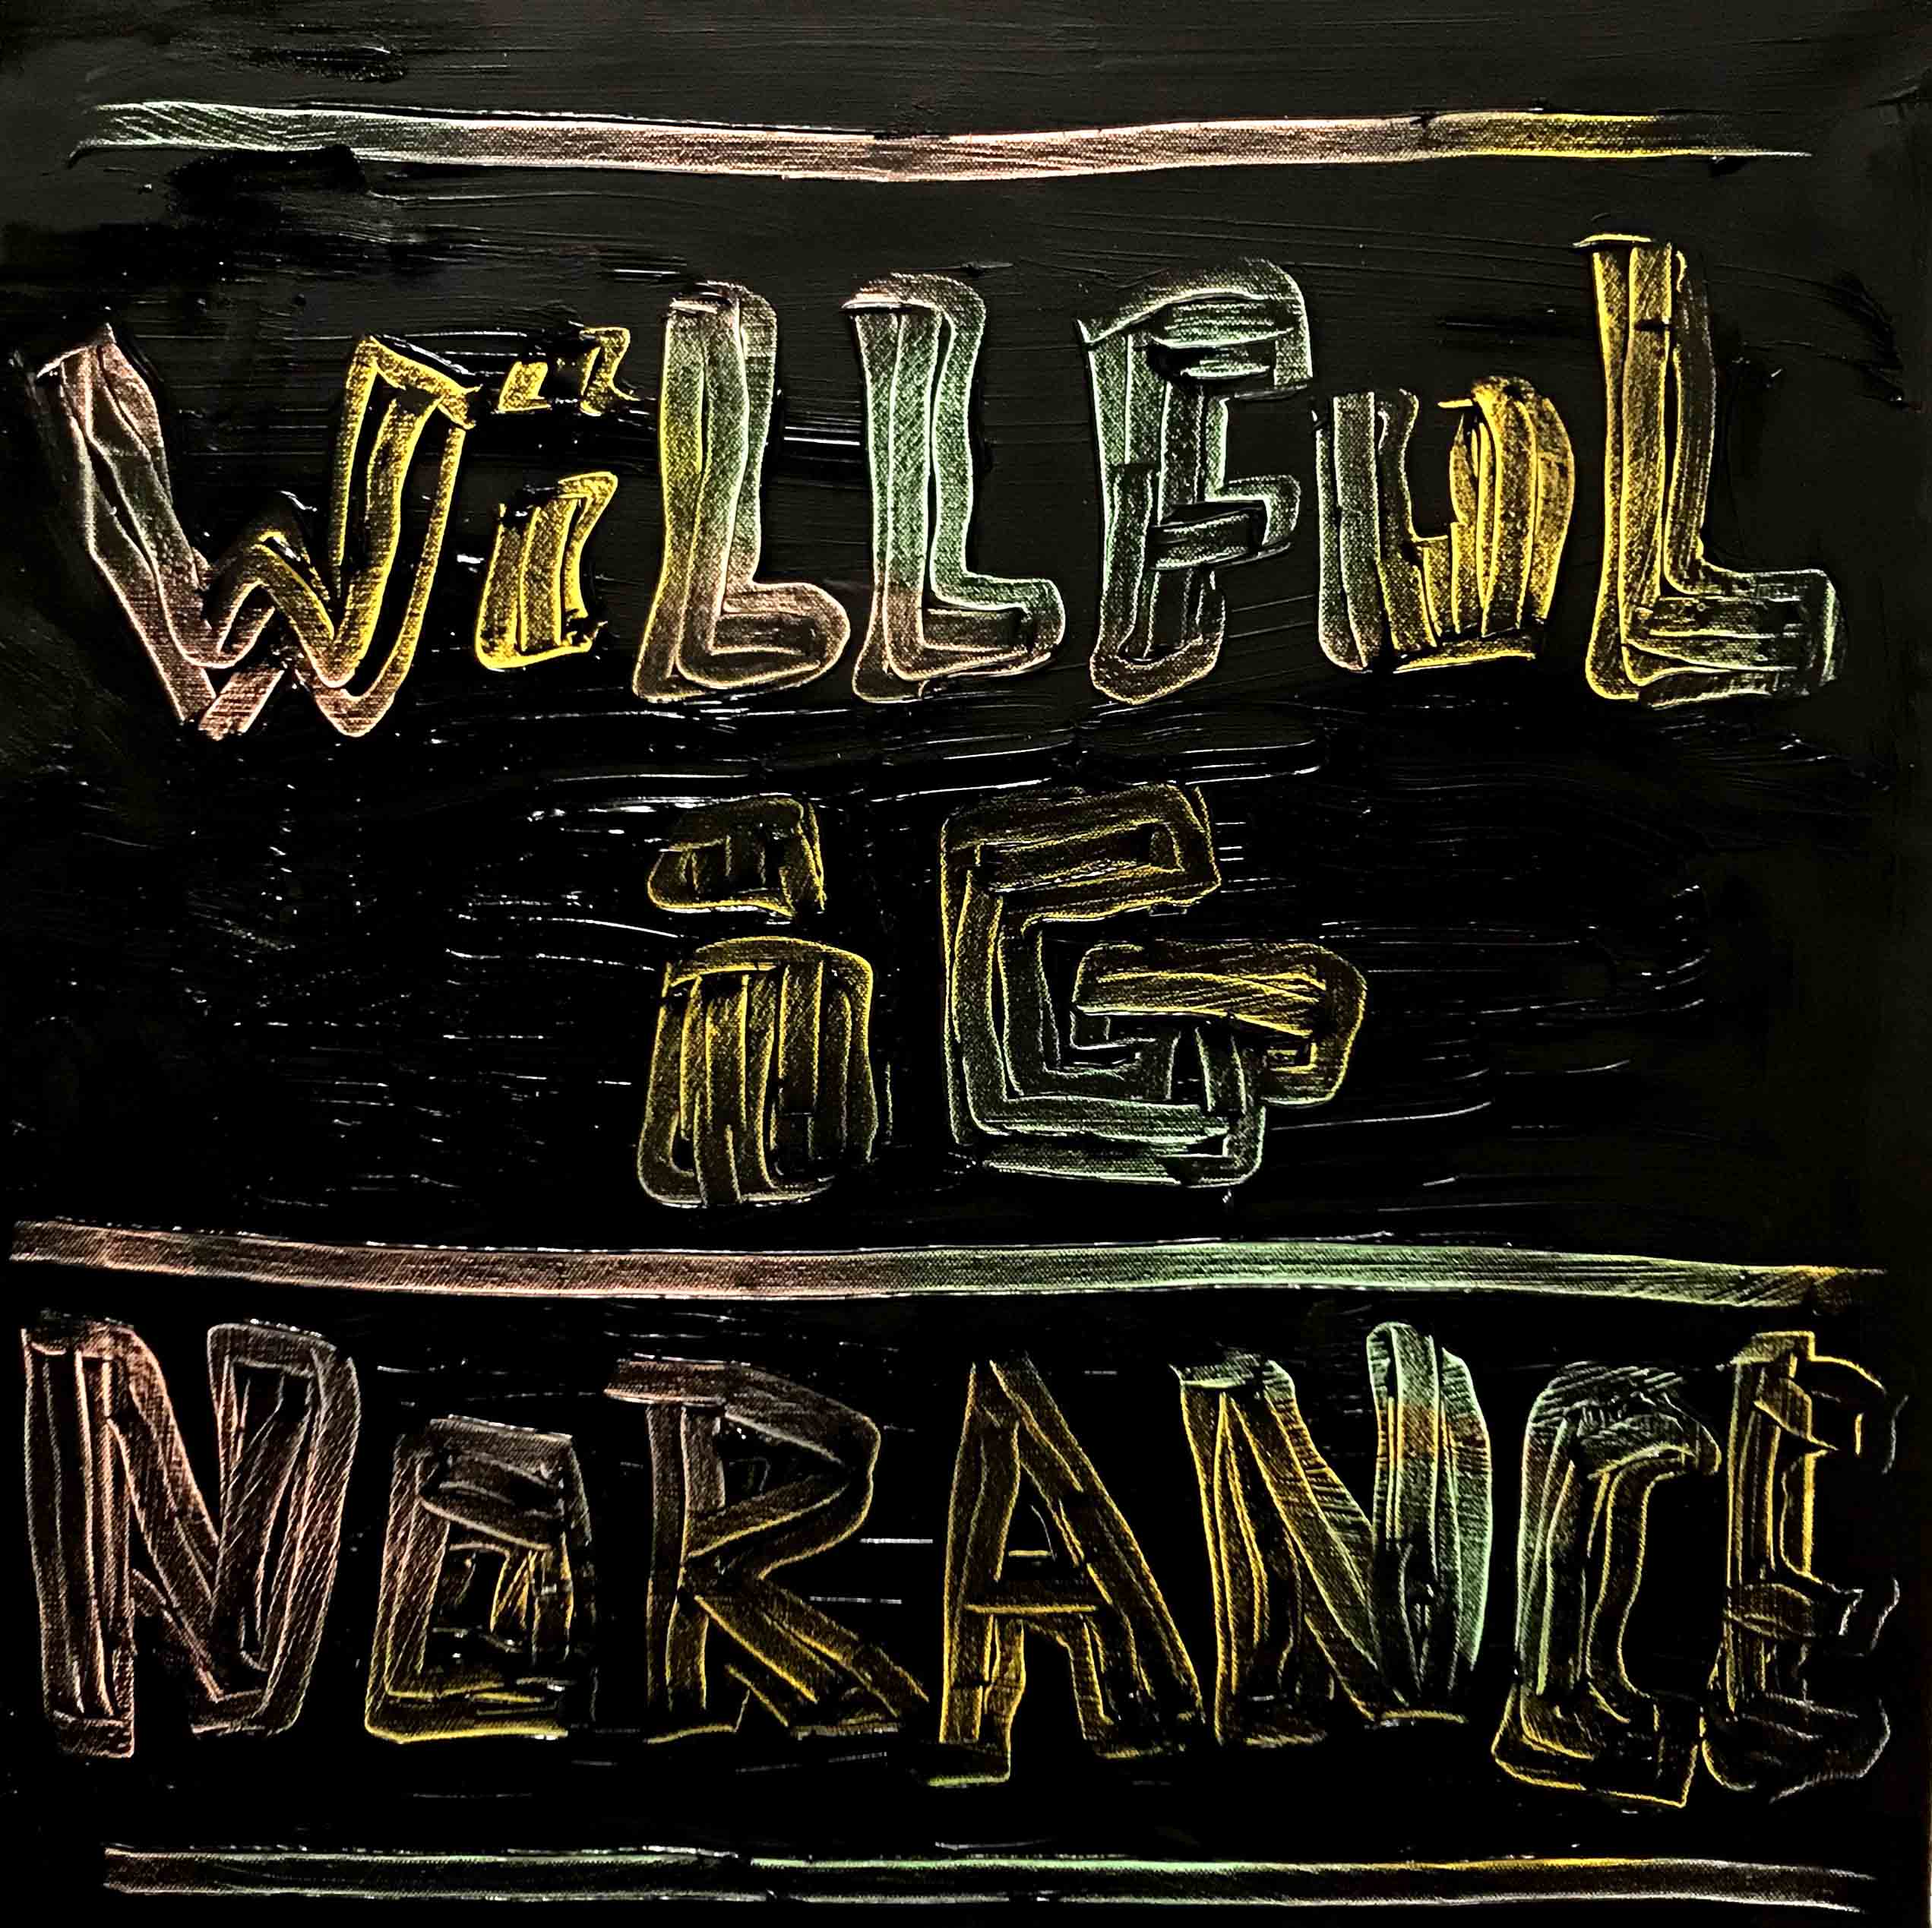 WiLLFUL
iG
NoRANCE